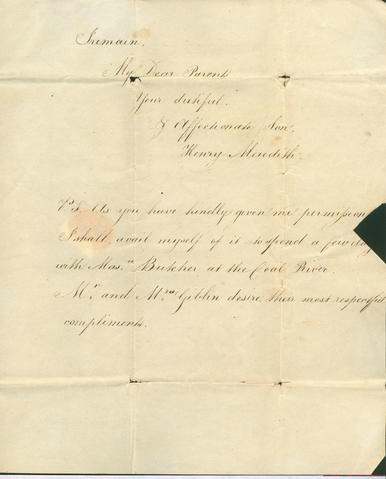 I remain,
My Dear Parents
Your dutiful
& Affectionate Son,
Henry Meredith.
P.S. As you have kindly given me permission
I shall avail myself of it to spend a few days
with Mas.r Butcher at the Coal River.
Mr. and Mrs. Giblin desire their most respectful
compliments.